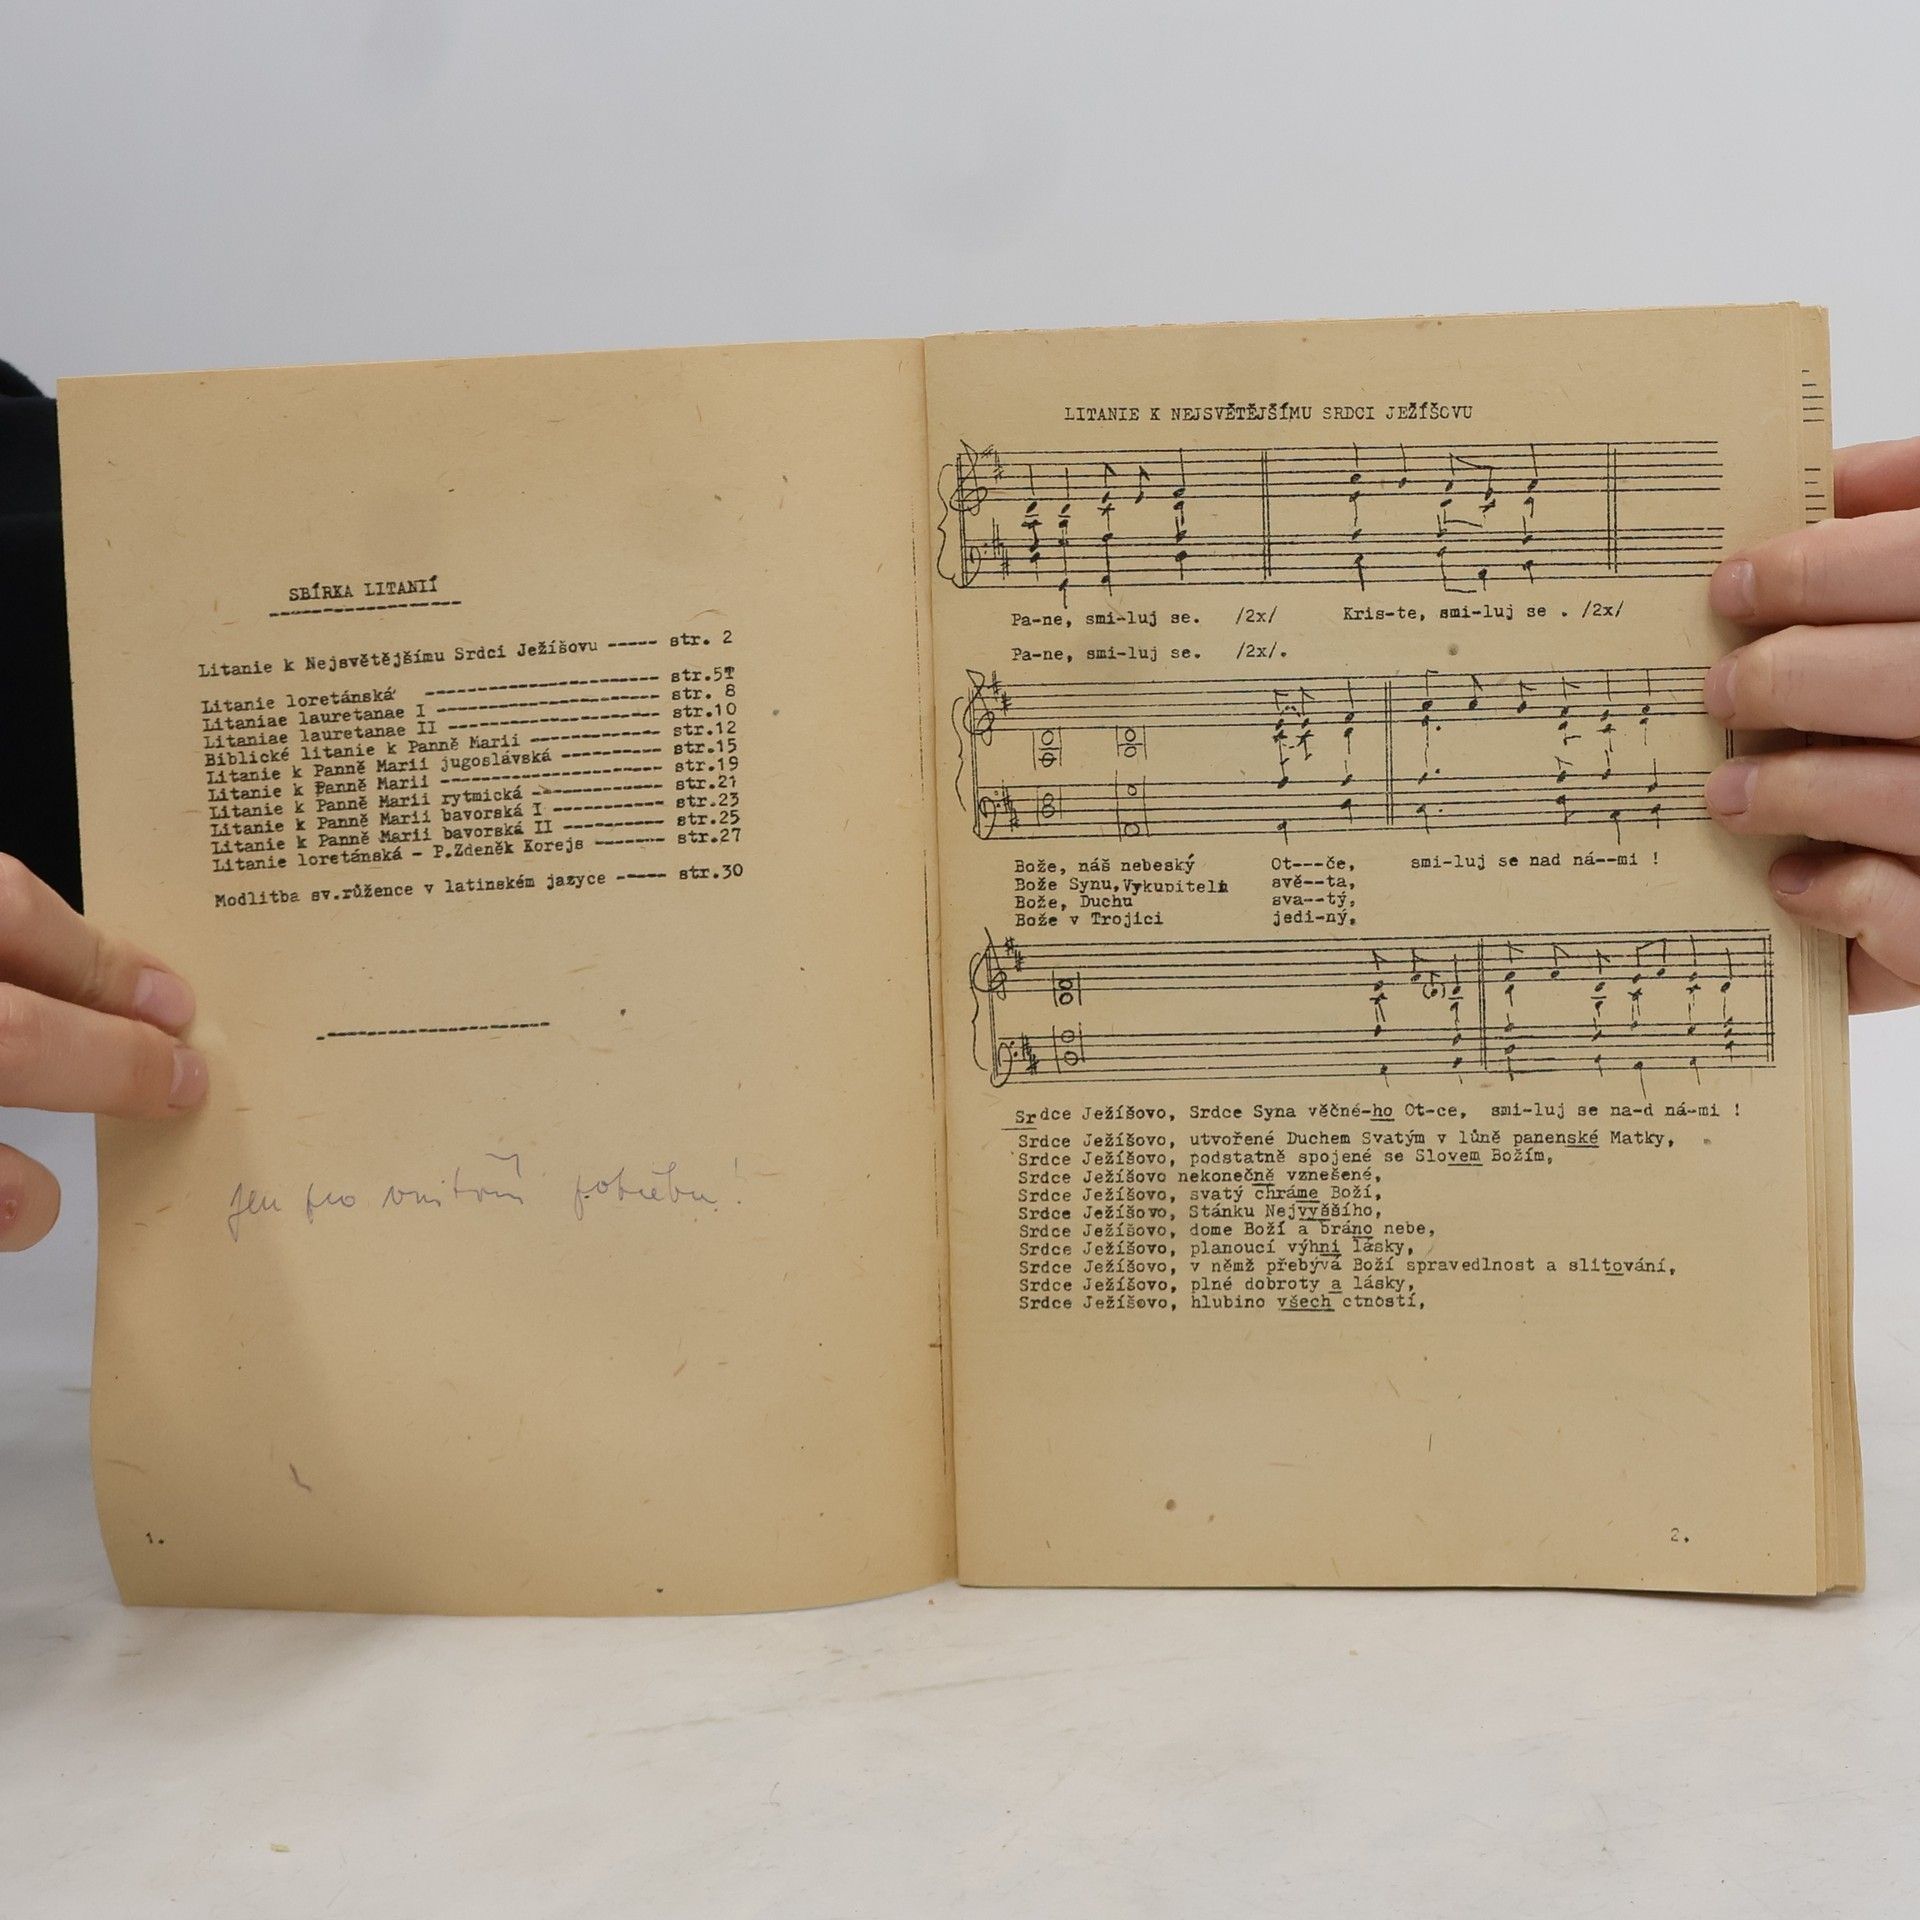 SBÍRKA LITANIÍ
Litanie k Nejsvětějšímu Srdci Ježíšovu ----- str. 2
Litanie loretánská ------------------ str.5
Litaniae lauretanae I ----------------- str. 8
Litaniae lauretanae II ---------------- str.10
Biblické litanie k Panně Marii ---------- str.12
Litanie k Panně Marii jugoslávská -------- str.15
Litanie k Panně Marii ----------------- str.19
Litanie k Panně Marii rytmická ---------- str.21
Litanie k Panně Marii bavorská I --------- str.23
Litanie k Panně Marii bavorská II -------- str.25
Litanie loretánská - P.Zdeněk Korejs ------ str.27
Modlitba sv.růžence v latinském jazyce ----- str.30
Jen pro vnitřní potřebu!
1.
LITANIE K NEJSVĚTĚJŠÍMU SRDCI JEŽÍŠOVU
Pa-ne, smi-luj se. /2x/ Kris-te, smi-luj se . /2x/
Pa-ne, smi-luj se. /2x/.
Bože, náš nebeský Ot---če, smi-luj se nad ná--mi !
Bože Synu, Vykupiteli svě--ta,
Bože, Duchu sva--tý,
Bože v Trojici jedi-ný,
Srdce Ježíšovo, Srdce Syna věčné-ho Ot-ce, smi-luj se na-d ná-mi !
Srdce Ježíšovo, utvořené Duchem Svatým v lůně panenské Matky,
Srdce Ježíšovo, podstatně spojené se Slovem Božím,
Srdce Ježíšovo nekonečně vznešené,
Srdce Ježíšovo, svatý chráme Boží,
Srdce Ježíšovo, Stánku Nejvyššího,
Srdce Ježíšovo, dome Boží a bráno nebe,
Srdce Ježíšovo, planoucí výhni lásky,
Srdce Ježíšovo, v němž přebývá Boží spravedlnost a slitování,
Srdce Ježíšovo, plné dobroty a lásky,
Srdce Ježíšovo, hlubino všech ctností,
2.